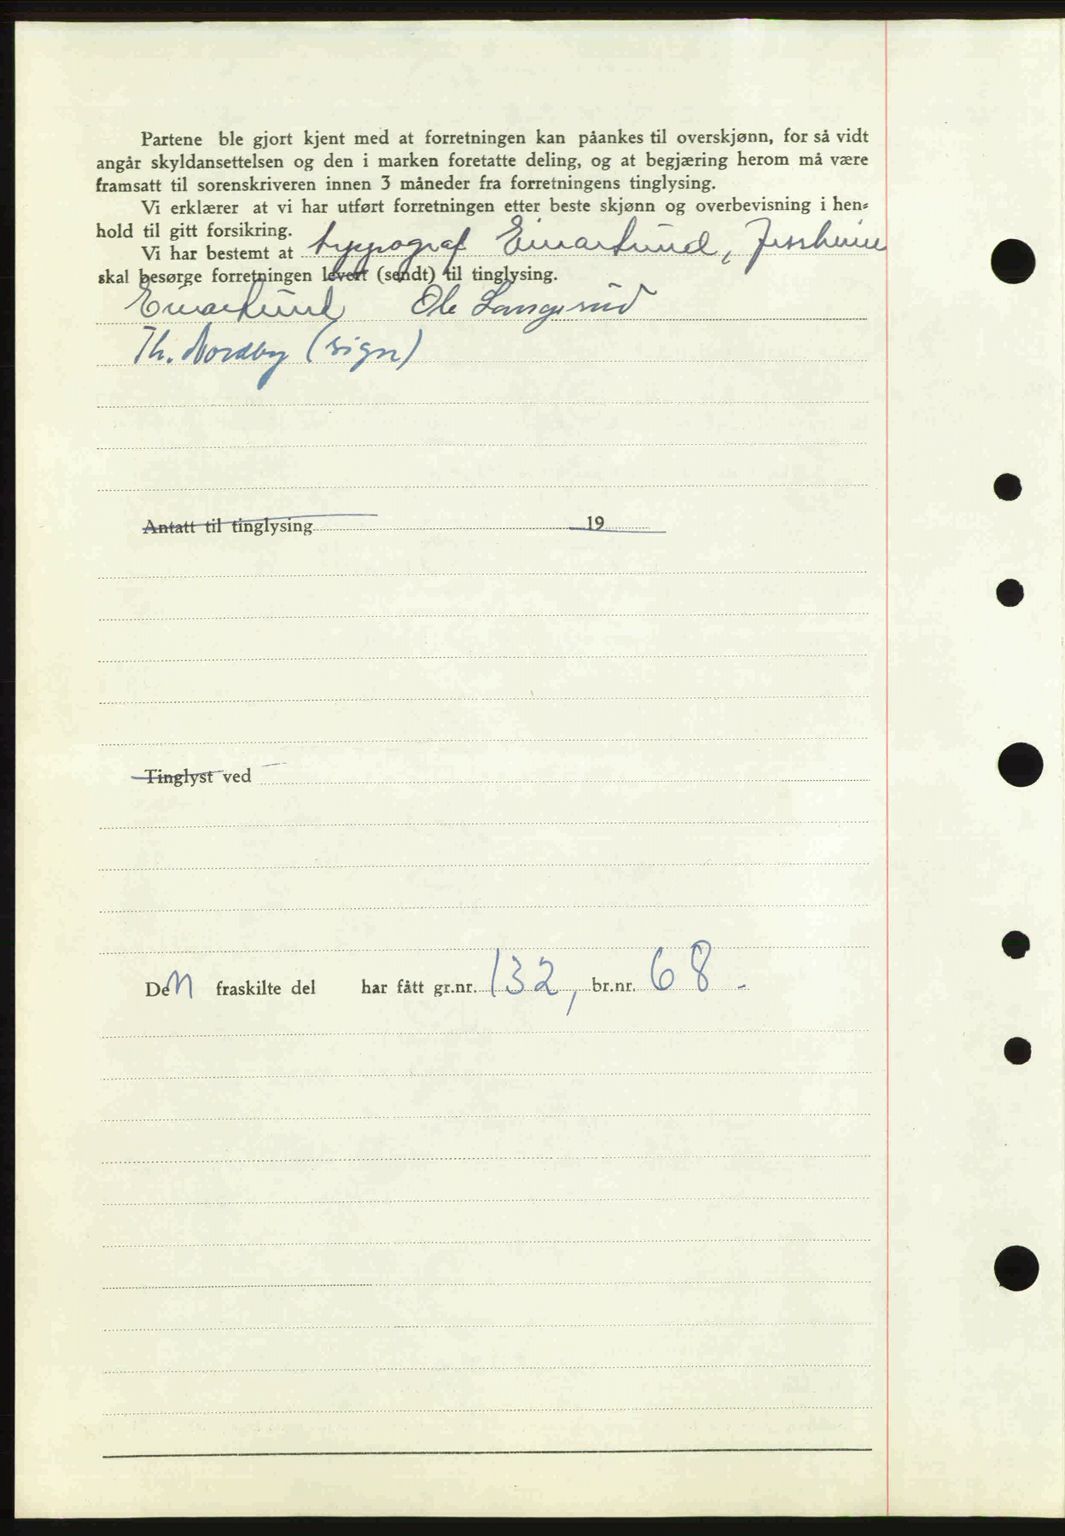 Partene ble gjort kjent med at forretningen kan påankes til overskjønn, for så vidt
angår skyldansettelsen og den i marken foretatte deling, og at begjæring herom må være
framsatt til sorenskriveren innen 3 måneder fra forretningens tinglysing.
Vi erklærer at vi har utført forretningen etter beste skjønn og overbevisning i hen-
hold til gitt forsikring.
Vi har bestemt at typograf Einar Lund, Jessheim
skal besørge forretningen levert (sendt) til tinglysing.
Einar Lund Ole Langsrud
Th. Nordby (sign)
Antatt til tinglysing 19
Tinglyst ved
Den fraskilte del har fått gr.nr. 132, br.nr. 68.